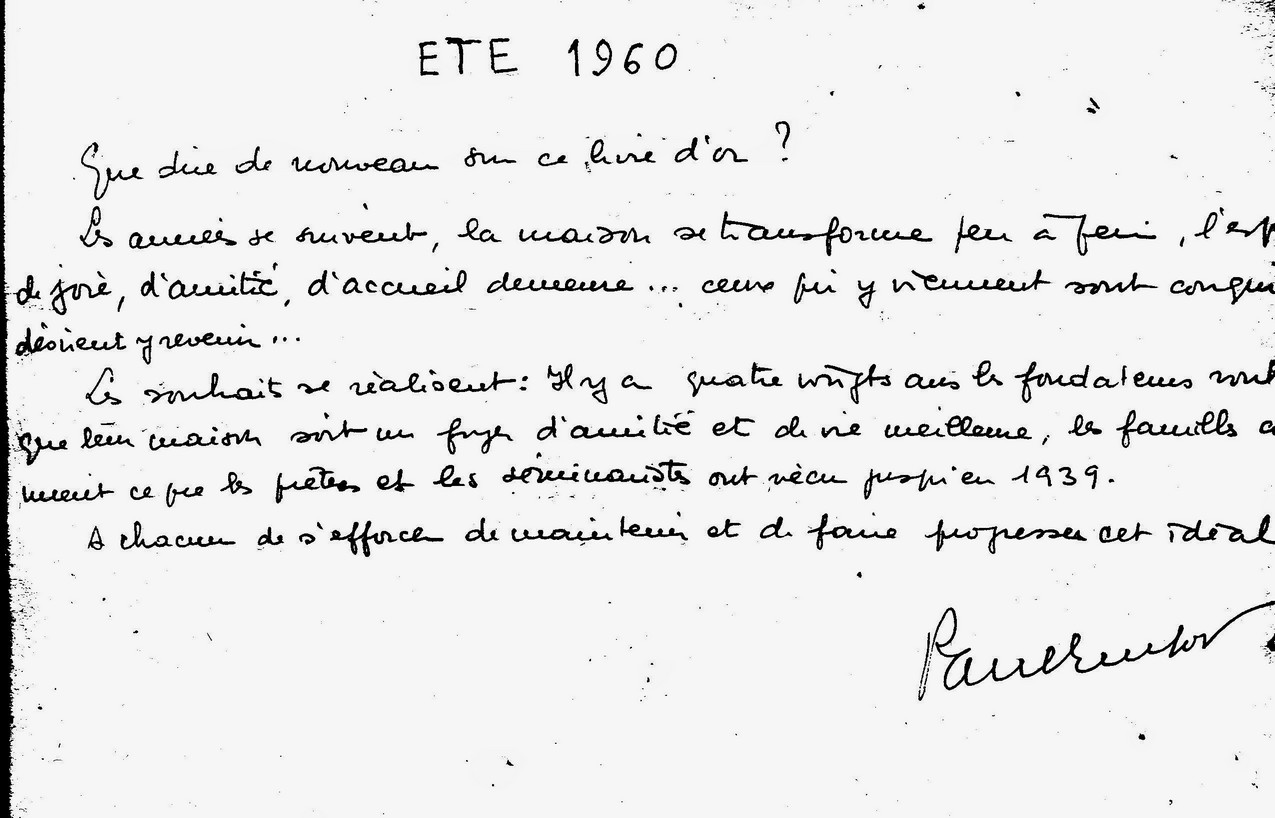 ETE 1960
Que dire de nouveau sur ce livre d'or ?
Les années se suivent, la maison se transforme peu à peu, l'esp
de joie, d'amitié, d'accueil demeure ... ceux qui y viennent sont conqui
désirent y revenir ...
Les souhaits se réalisent : Il y a quatre vingts ans les fondateurs
que leur maison soit un foyer d'amitié et de vie meilleure, les familles
nuent ce que les prêtres et les séminaristes ont vécu jusqu'en 1939.
A chacun de s'efforcer de maintenir et de faire progresser cet idéal